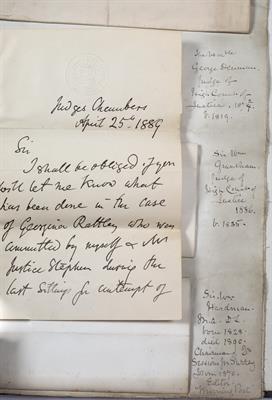 Judges Chambers
April 25th 1889
Sir
I shall be obliged if you
will let me know what
has been done in the case
of Georgina Rattley who was
committed by myself & Mr
Justice Stephen during the
last Sittings for contempt of
George Denman,
Judge of
High Court of
Justice,
b. 1819.
Sir Wm
Grantham,
Judge of
High Court of
Justice
1886.
b. 1835.
Sir Wm
Hardman
born 1828
died 1890.
Chairman
Sessions Surrey
from 1870.
Editor
Morning Post